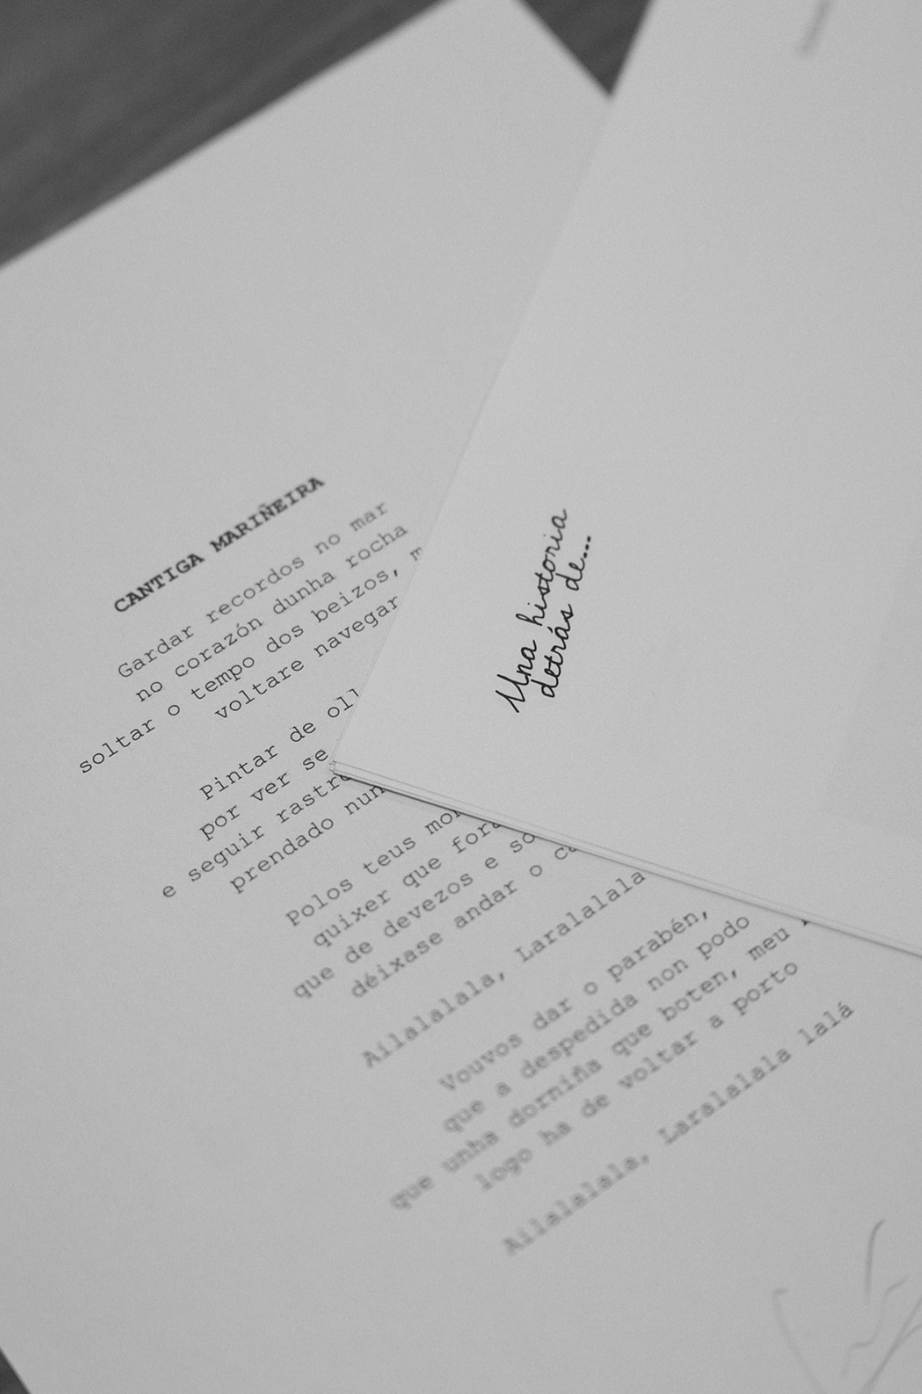 CANTIGA MARIÑEIRA
Gardar recordos no mar
no corazón dunha rocha
soltar o tempo dos beizos,
voltare navegar
Pintar de
por ver se
e seguir
prendado
Polos teus
quixer que
que de devezos e
déixase andar o
Ailalalala, Laralalala
Vouvos dar o parabén,
que a despedida non podo
que unha dorniña que boten, meu
logo ha de voltar a porto
Ailalalala, Laralalala lalá
Una historia
detrás de...